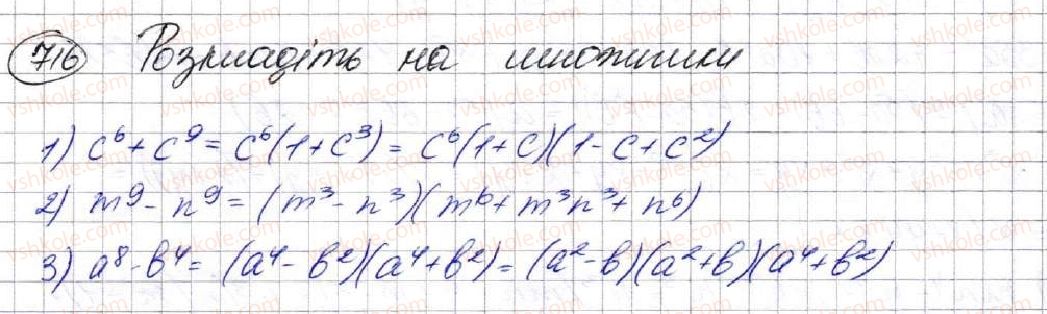 716 Розкладіть на множники
1) c⁶ + c⁹ = c⁶(1 + c³) = c⁶(1 + c)(1 - c + c²)
2) m⁹ - n⁹ = (m³ - n³)(m⁶ + m³n³ + n⁶)
3) a⁸ - b⁴ = (a⁴ - b²)(a⁴ + b²) = (a² - b)(a² + b)(a⁴ + b²)